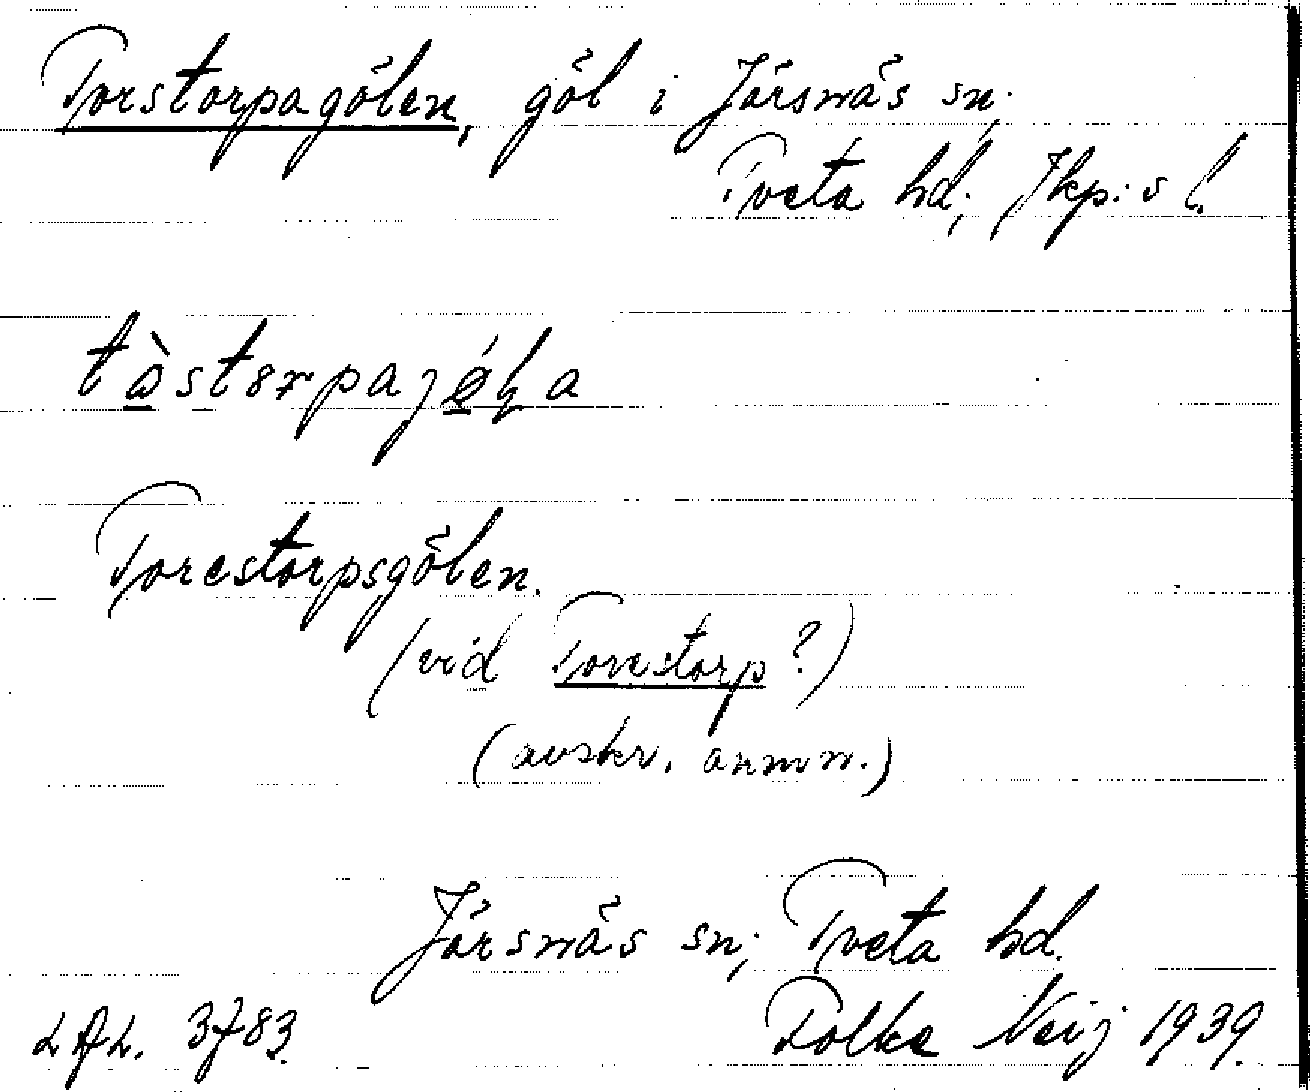 Torstorpagölen, göl i Järsnäs sn;
Tveta hd; Jkp:s l.
Torestorpsgölen.
(vid Torestorp?)
(avskr. anmn.)
Järsnäs sn; Tveta hd.
Folke Neij 1939.